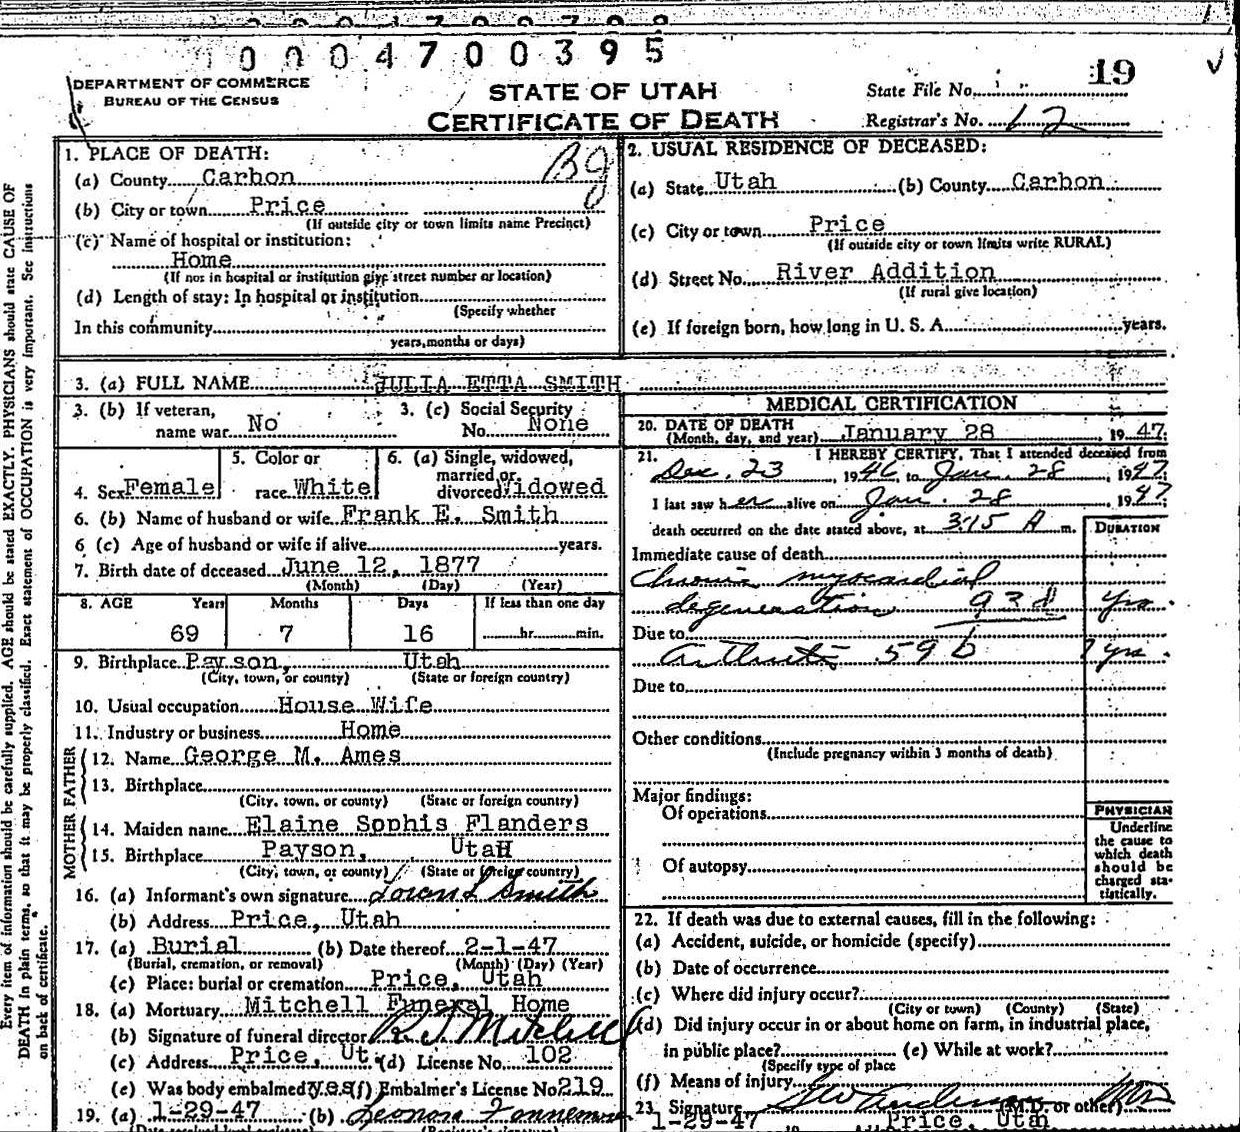 0004700395
DEPARTMENT OF COMMERCE
BUREAU OF THE CENSUS
STATE OF UTAH
CERTIFICATE OF DEATH
State File No. 19
Registrar's No. 12
Every item of information should be carefully supplied. AGE should be stated EXACTLY. PHYSICIANS should state CAUSE OF
DEATH in plain terms, so that it may be properly classified. Exact statement of OCCUPATION is very important. See instructions
on back of certificate.
1. PLACE OF DEATH:
(a) County Carbon
(b) City or town Price
(If outside city or town limits name Precinct)
(c) Name of hospital or institution:
Home
(If not in hospital or institution give street number or location)
(d) Length of stay: In hospital or institution
(Specify whether
In this community
years, months or days)
2. USUAL RESIDENCE OF DECEASED:
(a) State Utah (b) County Carbon
(c) City or town Price
(If outside city or town limits write RURAL)
(d) Street No. River Addition
(If rural give location)
(e) If foreign born, how long in U. S. A. years.
3. (a) FULL NAME JULIA ETTA SMITH
3. (b) If veteran, name war No
3. (c) Social Security No. None
4. Sex Female
5. Color or race White
6. (a) Single, widowed, married or divorced Widowed
6. (b) Name of husband or wife Frank E. Smith
6 (c) Age of husband or wife if alive years.
7. Birth date of deceased June 12, 1877
(Month) (Day) (Year)
8. AGE Years Months Days If less than one day
69 7 16 hr. min.
9. Birthplace Payson, Utah
(City, town, or county) (State or foreign country)
10. Usual occupation House Wife
11. Industry or business Home
FATHER
12. Name George M. Ames
13. Birthplace
(City, town, or county) (State or foreign country)
MOTHER
14. Maiden name Elaine Sophis Flanders
15. Birthplace Payson, UtaH
(City, town, or county) (State or foreign country)
16. (a) Informant's own signature Loren L Smith
(b) Address Price, Utah
17. (a) Burial (b) Date thereof 2-1-47
(Burial, cremation, or removal) (Month) (Day) (Year)
(c) Place: burial or cremation Price, Utah
18. (a) Mortuary Mitchell Funeral Home
(b) Signature of funeral director R. J. Mitchell
(c) Address Price, Ut. (d) License No. 102
(e) Was body embalmed yes (f) Embalmer's License No 219
19. (a) 1-29-47 (b) Leonora
MEDICAL CERTIFICATION
20. DATE OF DEATH
(Month, day, and year) January 28 19 47
21. I HEREBY CERTIFY, That I attended deceased from
Dec. 23, 1946 to Jan. 28 1947
I last saw h er alive on Jan. 28 1947
death occurred on the date stated above, at 3:15 A m.
DURATION
Immediate cause of death
Chronic myocardial
degeneration 93d yrs.
Due to
Arthritis 59b ? yrs.
Due to
Other conditions
(Include pregnancy within 3 months of death)
Major findings:
Of operations
Of autopsy
PHYSICIAN
Underline
the cause to
which death
should be
charged sta-
tistically.
22. If death was due to external causes, fill in the following:
(a) Accident, suicide, or homicide (specify)
(b) Date of occurrence
(c) Where did injury occur?
(City or town) (County) (State)
(d) Did injury occur in or about home on farm, in industrial place,
in public place? (e) While at work?
(Specify type of place
(f) Means of injury
23. Signature (M.D. or other)
1-29-47 Price, Utah